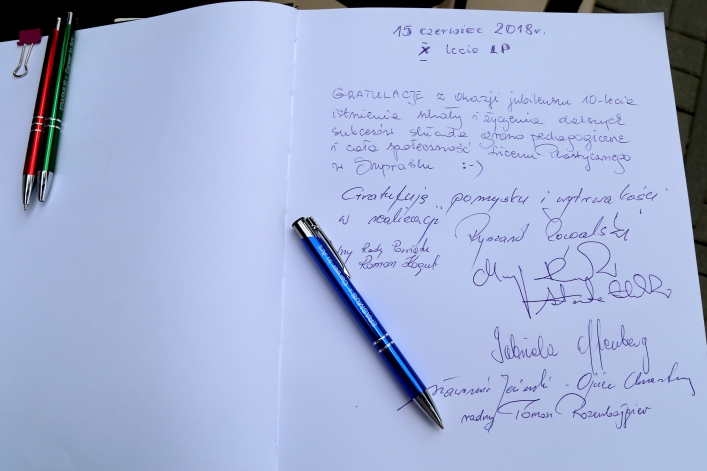 15 czerwiec 2018r.
X lecie LP
GRATULACJE z okazji jubileuszu 10-lecia
istnienia szkoły i życzenia dalszych
sukcesów składa grono pedagogiczne
i cała społeczność Liceum Plastycznego
w Supraślu :-)
Gratuluję pomysłu i wytrwałości
w realizacji
Ryszard Kowalski
Rady Powiatu
Roman Kogut
Gabriela Offenberg
Ojciec Chrzestny
radny Tomasz